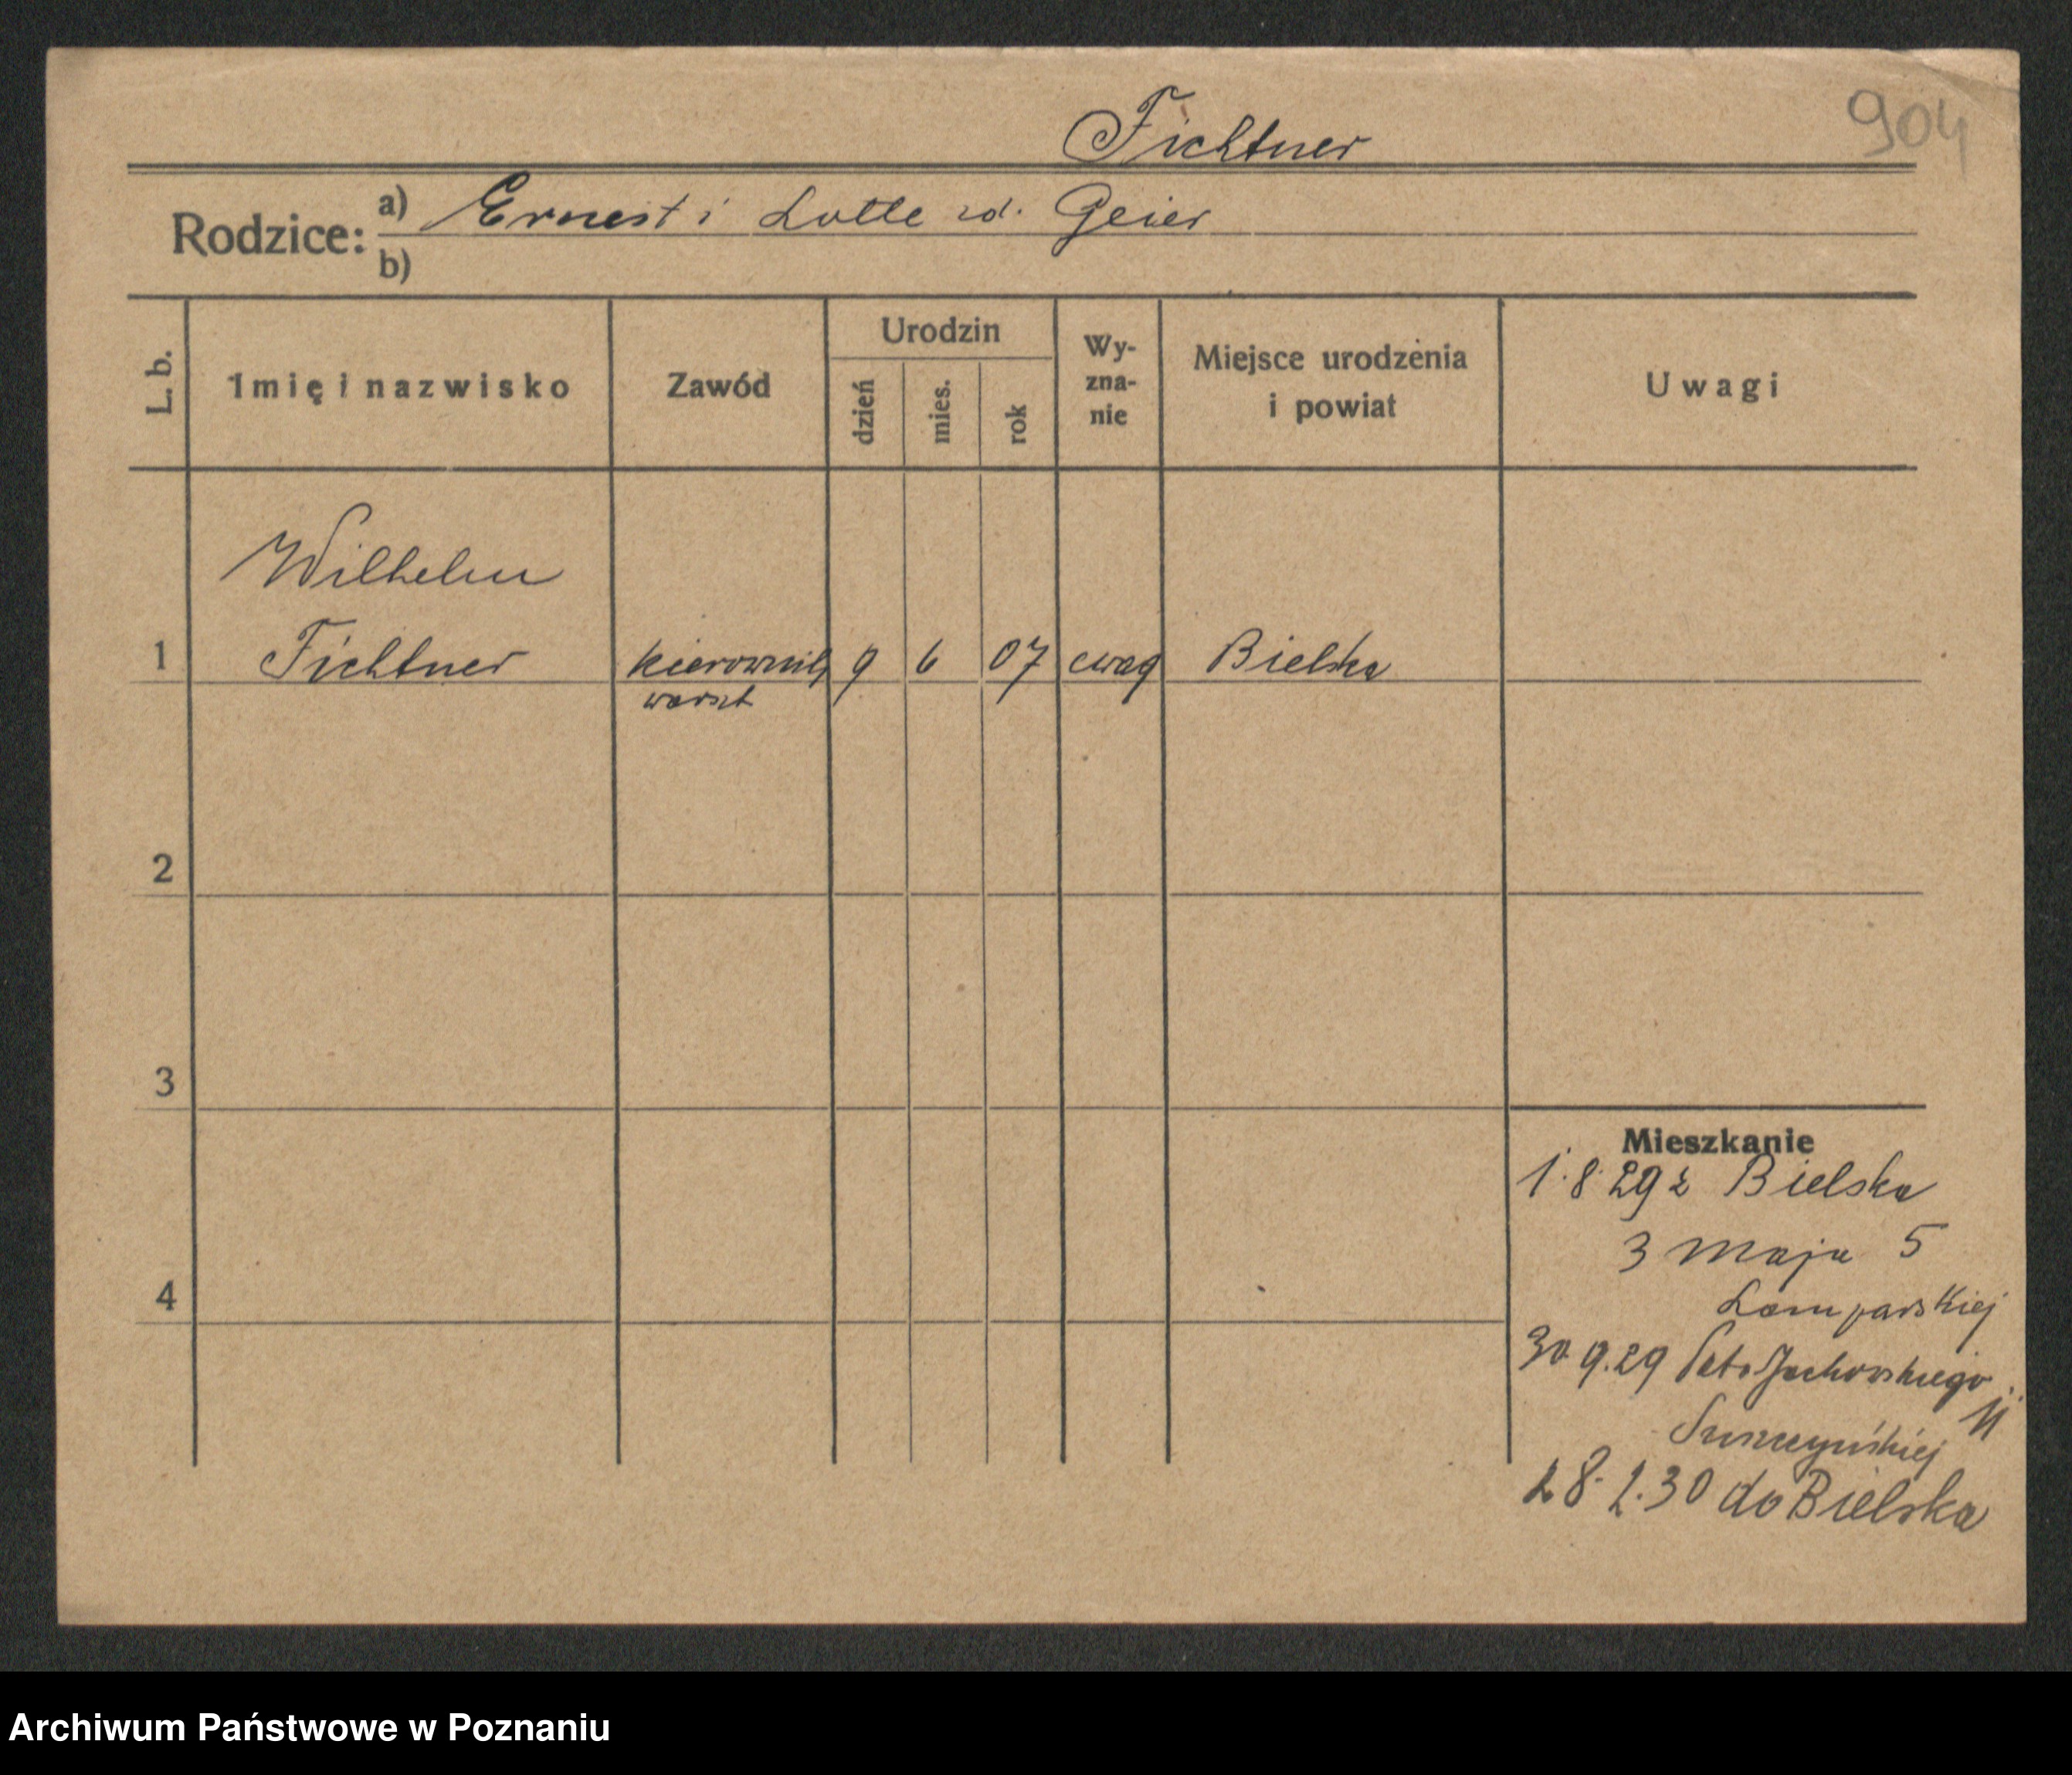 904
Fichtner
Rodzice: a) Ernest i Lotte zd. Geier
b)
L. b. Imię i nazwisko Zawód Urodzin dzień mies. rok Wy-zna-nie Miejsce urodzenia i powiat Uwagi
Wilhelm
1 Fichtner kierownik 9 6 07 ewag Bielska
warszt
2
3
Mieszkanie
1.8.29 z Bielska
3 Maja 5
4
Lamparskiej
30.9.29
11
28.2.30 do Bielska
Archiwum Państwowe w Poznaniu